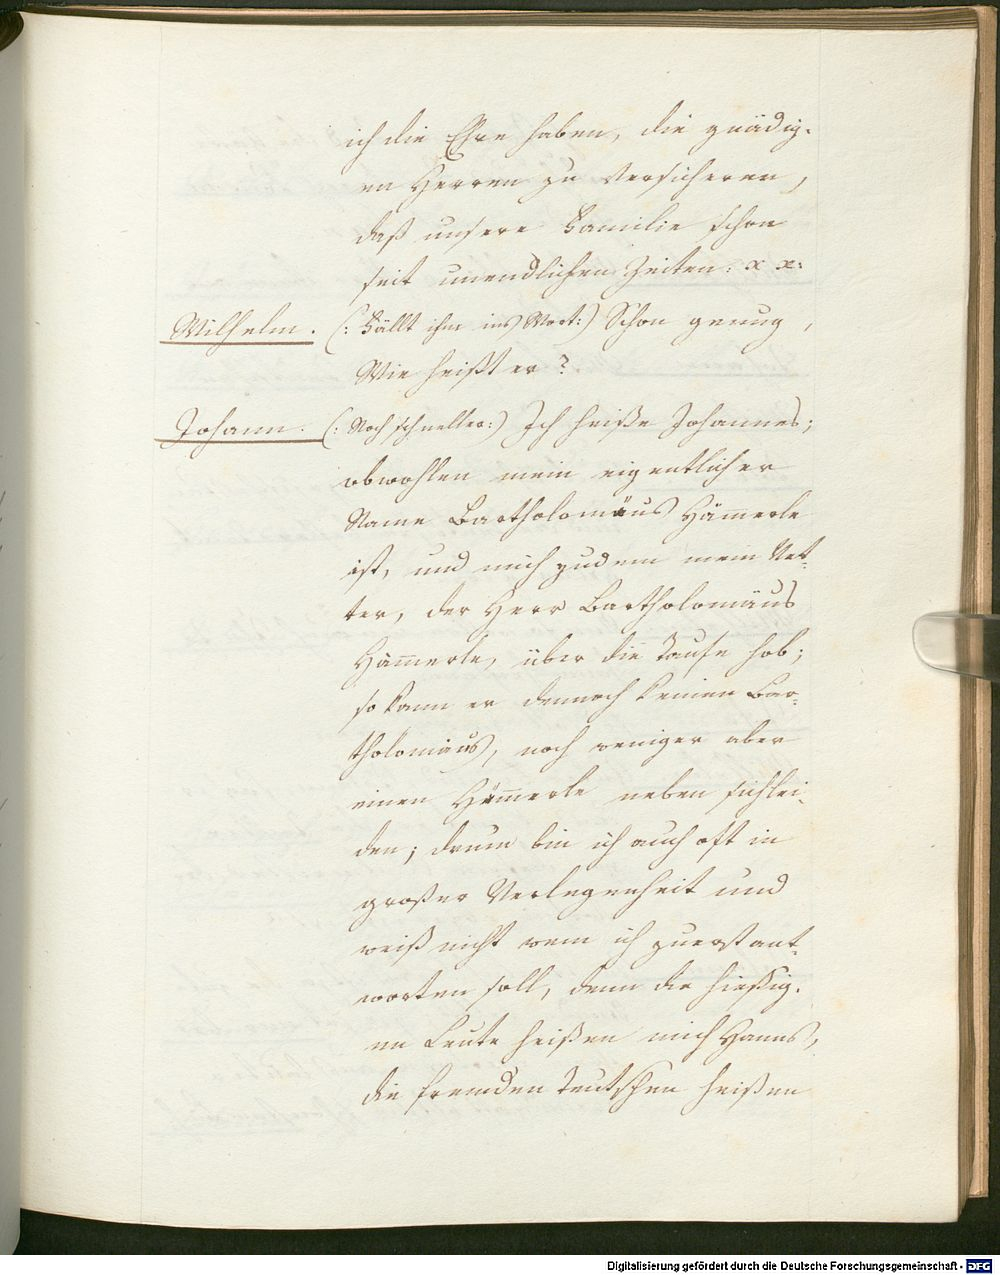 ich die Ehre haben, die gnädig-
en Herren zu versicheren,
daß unsere Familie schon
seit unendlichen Zeiten: x x:
Wilhelm. (: Fällt ihm ins Wort:) Schon genug,
Wie heißt er?
Johann. (: Noch schneller:) Ich heiße Johannes;
obwohlen mein eigentlicher
Name Bartholomäus Häm̄erle
ist, und mich zudem mein Vet-
ter, der Herr Bartholomäus
Häm̄erle, über die Taufe hob;
so kann er dennoch keinen Bar-
tholomäus, noch weniger aber
einen Häm̄erle neben sich lei-
den; drum bin ich auch oft in
großer Verlegenheit und
weiß nicht wem ich zuerst ant-
worten soll, denn die hießig-
en Leute heißen mich Hanns,
die fremden Teutschen heißen
Digitalisierung gefördert durch die Deutsche Forschungsgemeinschaft - DFG